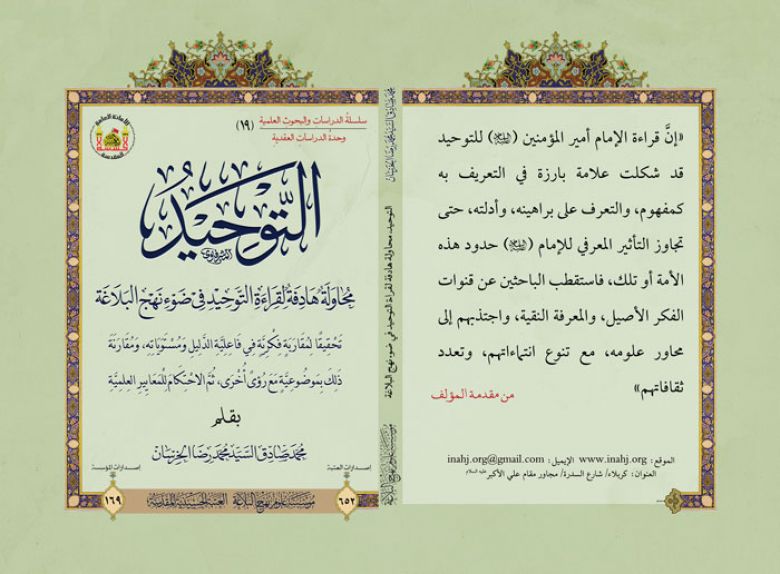 سلسلة الدراسات والبحوث العلمية (١٩)
وحدة الدراسات العقدية
التَّوحيدُ
مُحَاوَلَةٌ هَادِفَةٌ لِقِرَاءَةِ التَّوحِيدِ فِي ضَوْءِ نَهْجِ البَلَاغَة
تَحْقِيقًا لِمُقَارَبَةٍ فِكْرِيَّةٍ فِي فَاعِلِيَّةِ الدَّلِيلِ وَمُسْتَوَيَاتِهِ، وَمُقَارَنَةُ
ذَلِكَ بِمَوضُوعِيَّةٍ مَعَ رُؤًى أُخْرَى، ثُمَّ الاحْتِكَامُ لِلْمَعَايِيرِ العِلمِيَّةِ
بقلم
محمد صادق السيد محمد رضا الخرسان
إصدارات العتبة
٦٥٢
مؤسسة علوم نهج البلاغة العتبة الحسينية المقدسة
إصدارات المؤسسة
١٦٩
محمد صادق السيد محمد رضا الخرسان
التوحيد: محاولة هادفة لقراءة التوحيد في ضوء نهج البلاغة
مؤسسة علوم نهج البلاغة
«إنَّ قراءة الإمام أمير المؤمنين (عليه السلام) للتوحيد
قد شكلت علامة بارزة في التعريف به
كمفهوم، والتعرف على براهينه، وأدلته، حتى
تجاوز التأثير المعرفي للإمام (عليه السلام) حدود هذه
الأمة أو تلك، فاستقطب الباحثين عن قنوات
الفكر الأصيل، والمعرفة النقية، واجتذبهم إلى
محاور علومه، مع تنوع انتماءاتهم، وتعدد
ثقافاتهم»
من مقدمة المؤلف
الموقع: www.inahj.org الإيميل: inahj.org@gmail.com
العنوان: كربلاء/ شارع السدرة/ مجاور مقام علي الأكبر عليه السلام